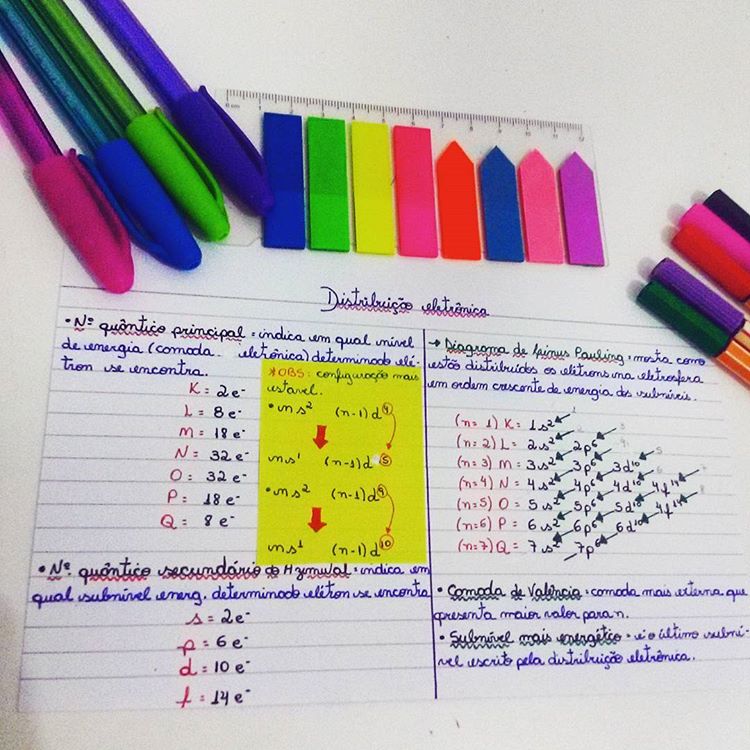 0 cm 1 2 3 4 5 6 7 8 9 10 11 12
Distribuição eletrônica
• Nº quântico principal = indica em qual nível
de energia (camada eletrônica) determinado elé-
tron se encontra.
K = 2e-
L = 8e-
M = 18e-
N = 32e-
O = 32e-
P = 18e-
Q = 8e-
*OBS: configuração mais
estavel.
• ns² (n-1)d⁴
ns¹ (n-1)d⁵
• ns² (n-1)d⁹
ns¹ (n-1)d¹⁰
• Nº quântico secundário ou Azimutal = indica em
qual subnível energ. determinado elétron se encontra
s = 2e-
p = 6e-
d = 10e-
f = 14e-
→ Diagrama de Linus Pauling: mostra como
estão distribuídos os elétrons na eletrosfera
em ordem crescente de energia dos subníveis.
(n=1) K = 1s²
(n=2) L = 2s² 2p⁶
(n=3) M = 3s² 3p⁶ 3d¹⁰
(n=4) N = 4s² 4p⁶ 4d¹⁰ 4f¹⁴
(n=5) O = 5s² 5p⁶ 5d¹⁰ 4f¹⁴
(n=6) P = 6s² 6p⁶ 6d¹⁰
(n=7) Q = 7s² 7p⁶
• Camada de Valência = camada mais externa que
apresenta maior valor para n.
• Subnível mais energético = é o último subní-
vel escrito pela distribuição eletrônica.